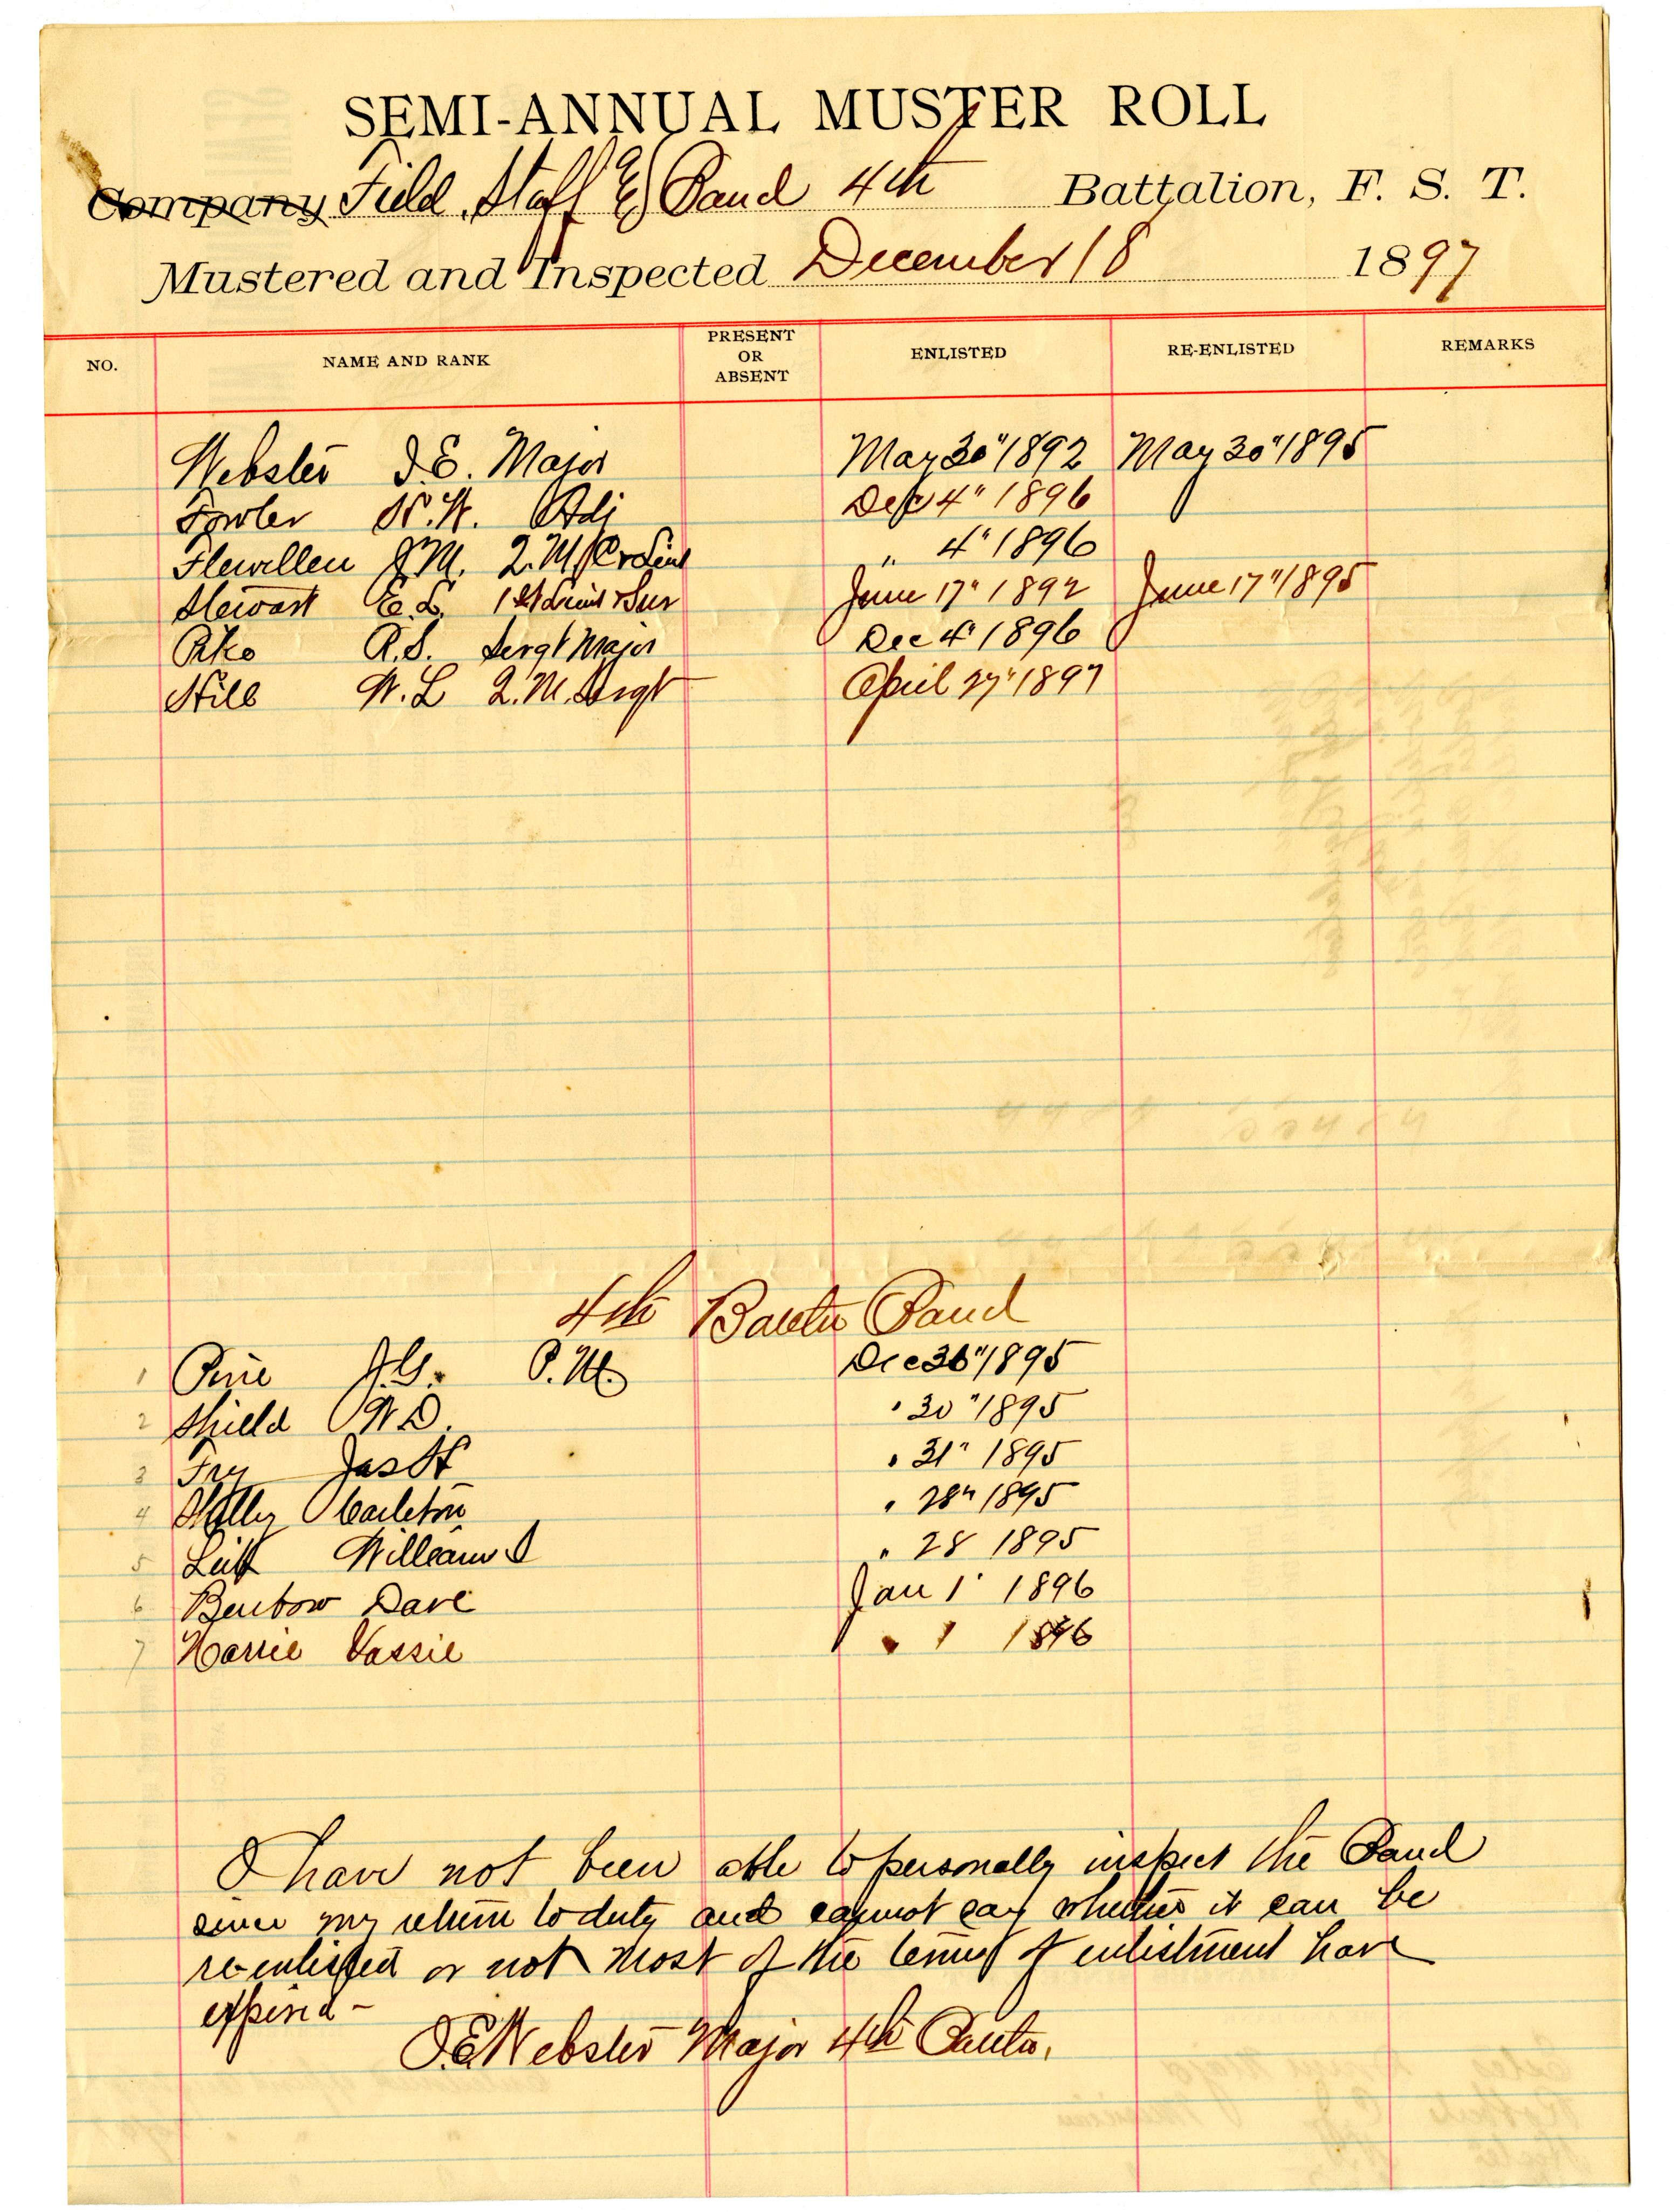 SEMI-ANNUAL MUSTER ROLL
Company Field, Staff & Band 4th Battalion, F. S. T.
Mustered and Inspected December 18 1897
NO. NAME AND RANK PRESENT OR ABSENT ENLISTED RE-ENLISTED REMARKS
Webster J.E. Major May 30" 1892 May 30" 1895
Fowler N.W. Adj Dec 4" 1896
Flewellen J.M. Q.M. " 4" 1896
Stewart E.L. 1st Lieut Sur June 17" 1892 June 17" 1895
R.S. Sergt Major Dec 4" 1896
Hill W.L Q.M. Sergt April 27" 1897
4th Band
1 J.G. P.M. Dec 30" 1895
2 Shield W.D. " 30" 1895
3 Fry Jas H " 31" 1895
4 Carleton " 28" 1895
5 William S " 28 1895
6 Benbow Dave Jan 1" 1896
7 Vassie " 1 1896
I have not been able to personally inspect the Band
since my return to duty and cannot say whether it can be
re-enlisted or not most of the terms of enlistment have
expired -
J.E. Webster Major 4th